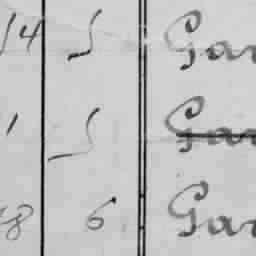 14 5 Gar
1 5 Gar
48 6 Gar